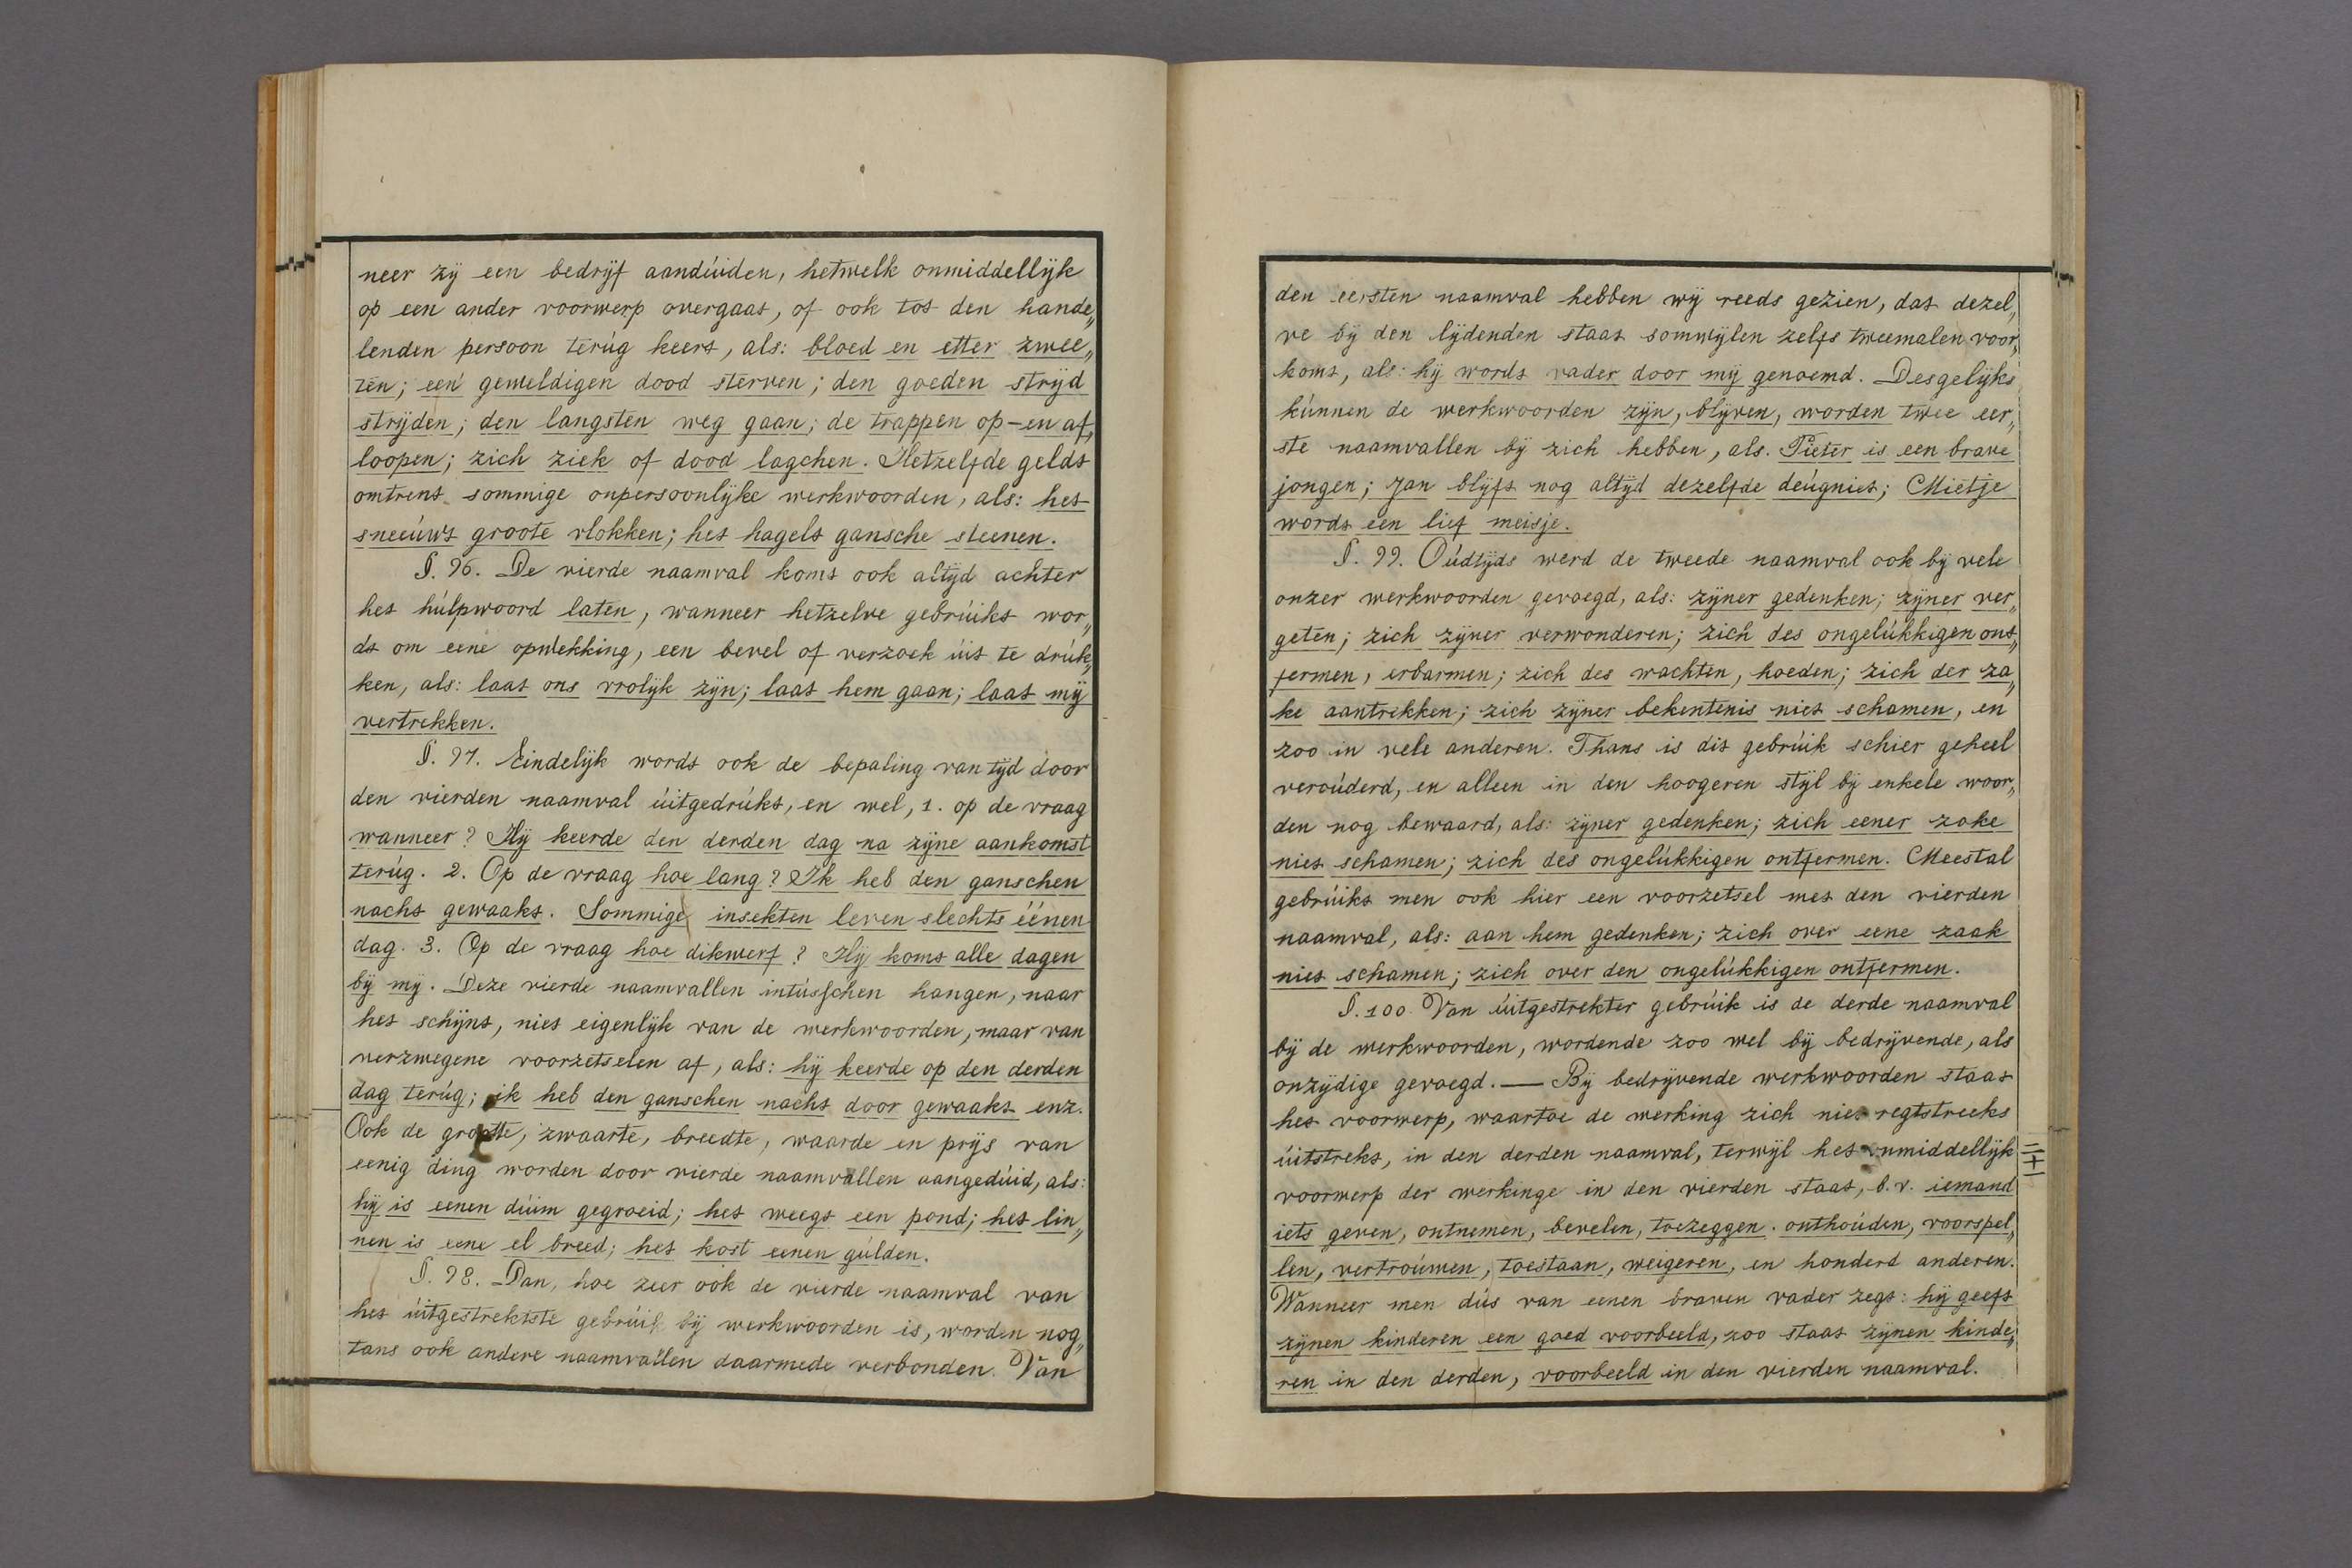 neer zij een bedrijf aandúiden, hetwelk onmiddellijk
op een ander voorwerp overgaat, of ook tot den hande„
lenden persoon terúg keert, als: bloed en etter zwee„
ten; een geweldigen dood sterven; den goeden strijd
strijden; den langsten weg gaan; de trappen op-en af„
loopen; zich ziek of dood lagchen. Hetzelfde geldt
omtrent sommige onpersoonlijke werkwoorden, als: het
sneeúwt groote vlokken; het hagelt gansche steenen.
§. 96. De vierde naamval komt ook altijd achter
het húlpwoord laten, wanneer hetzelve gebrúikt wor„
dt om eene opwekking, een bevel of verzoek úit te drúk„
ken, als: laat ons vrolijk zijn; laat hem gaan; laat mij
vertrekken.
§. 97. Eindelijk wordt ook de bepaling van tijd door
den vierden naamval úitgedrúkt, en wel, 1. op de vraag
wanneer? Hij keerde den derden dag na zijne aankomst
terúg. 2. Op de vraag hoe lang? Ik heb den ganschen
nacht gewaakt. Sommige insekten leven slechts éénen
dag. 3. Op de vraag hoe dikwerf? Hij komt alle dagen
bij mij. Deze vierde naamvallen intússchen hangen, naar
het schijnt, niet eigenlijk van de werkwoorden, maar van
verzwegene voorzetselen af, als: hij keerde op den derden
dag terúg; ik heb den ganschen nacht door gewaakt enz.
Ook de grootte, zwaarte, breedte, waarde en prijs van
eenig ding worden door vierde naamvallen aangedúid, als:
hij is eenen dúim gegroeid; het weegt een pond; het lin„
nen is eene el breed; het kost eenen gúlden.
§. 98. Dan, hoe zeer ook de vierde naamval van
het úitgestrektste gebrúik bij werkwoorden is, worden nog„
tans ook andere naamvallen daarmede verbonden. Van
den eersten naamval hebben wij reeds gezien, dat dezel„
ve bij den lijdenden staat somwijlen zelfs tweemalen voor„
komt, als: hij wordt vader door mij genoemd. Desgelijks
kúnnen de werkwoorden zijn, blijven, worden twee eer„
ste naamvallen bij zich hebben, als. Pieter is een brave
jongen; Jan blijft nog altijd dezelfde deúgniet; Mietje
wordt een lief meisje.
§. 99. Oúdtijds werd de tweede naamval ook bij vele
onzer werkwoorden gevoegd, als: zijner gedenken; zijner ver„
geten; zich zijner verwonderen; zich des ongelúkkigen ont„
fermen, erbarmen; zich des wachten, hoeden; zich der za„
ke aantrekken; zich zijner bekentenis niet schamen, en
zoo in vele anderen. Thans is dit gebrúik schier geheel
veroúderd, en alleen in den hoogeren stijl bij enkele woor„
den nog bewaard, als: zijner gedenken; zich eener zake
niet schamen; zich des ongelúkkigen ontfermen. Meestal
gebrúikt men ook hier een voorzetsel met den vierden
naamval, als: aan hem gedenken; zich over eene zaak
niet schamen; zich over den ongelúkkigen ontfermen.
§. 100. Van úitgestrekter gebrúik is de derde naamval
bij de werkwoorden, wordende zoo wel bij bedrijvende, als
onzijdige gevoegd. — Bij bedrijvende werkwoorden staat
het voorwerp, waartoe de werking zich niet regtstreeks
úitstrekt, in den derden naamval, terwijl het onmiddellijk
voorwerp der werkinge in den vierden staat, b.v. iemand
iets geven, ontnemen, bevelen, toezeggen. onthoúden, voorspel„
len, vertroúwen, toestaan, weigeren, en honderd anderen.
Wanneer men dús van eenen braven vader zegt: hij geeft
zijnen kinderen een goed voorbeeld, zoo staat zijnen kinde„
ren in den derden, voorbeeld in den vierden naamval.